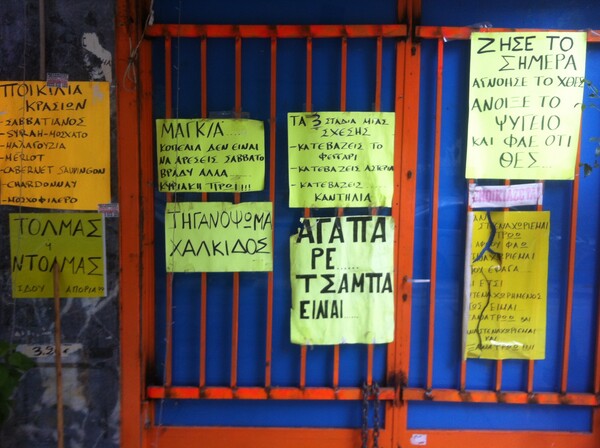 ΠΟΙΚΙΛΙΑ
ΚΡΑΣΙΩΝ
-ΣΑΒΒΑΤΙΑΝΟΣ
-SYRAH-ΜΟΣΧΑΤΟ
-ΜΑΛΑΓΟΥΖΙΑ
-MERLOT
-CABERNET SAUVINGON
-CHARDONNAY
-ΜΟΣΧΟΦΙΛΕΡΟ
ΤΟΛΜΑΣ
Ή
ΝΤΟΛΜΑΣ
ΙΔΟΥ Η ΑΠΟΡΙΑ!!
ΜΑΓΚ/Α....
ΚΟΠΕΛΙΑ ΔΕΝ ΕΙΝΑΙ
ΝΑ ΑΡΕΣΕΙΣ ΣΑΒΒΑΤΟ
ΒΡΑΔΥ ΑΛΛΑ
ΚΥΡΙΑΚΗ ΠΡΩΙ!!!
ΤΗΓΑΝΟΨΩΜΑ
ΧΑΛΚΙΔΟΣ
ΤΑ 3 ΣΤΑΔΙΑ ΜΙΑΣ
ΣΧΕΣΗΣ
-ΚΑΤΕΒΑΖΕΙΣ ΤΟ
ΦΕΓΓΑΡΙ
-ΚΑΤΕΒΑΖΕΙΣ ΑΣΤΕΡΙΑ
-ΚΑΤΕΒΑΖΕΙΣ
ΚΑΝΤΗΛΙΑ
ΑΓΑΠΑ
ΡΕ....
ΤΣΑΜΠΑ
ΕΙΝΑΙ...
ΖΗΣΕ ΤΟ
ΣΗΜΕΡΑ
ΑΓΝΟΗΣΕ ΤΟ ΧΘΕΣ
ΑΝΟΙΞΕ ΤΟ
ΨΥΓΕΙΟ
ΚΑΙ ΦΑΕ ΟΤΙ
ΘΕΣ
ΤΡΩΩ
ΦΑΩ
ΕΤΣΙ
ΕΙΝΑΙ
ΚΑΙ